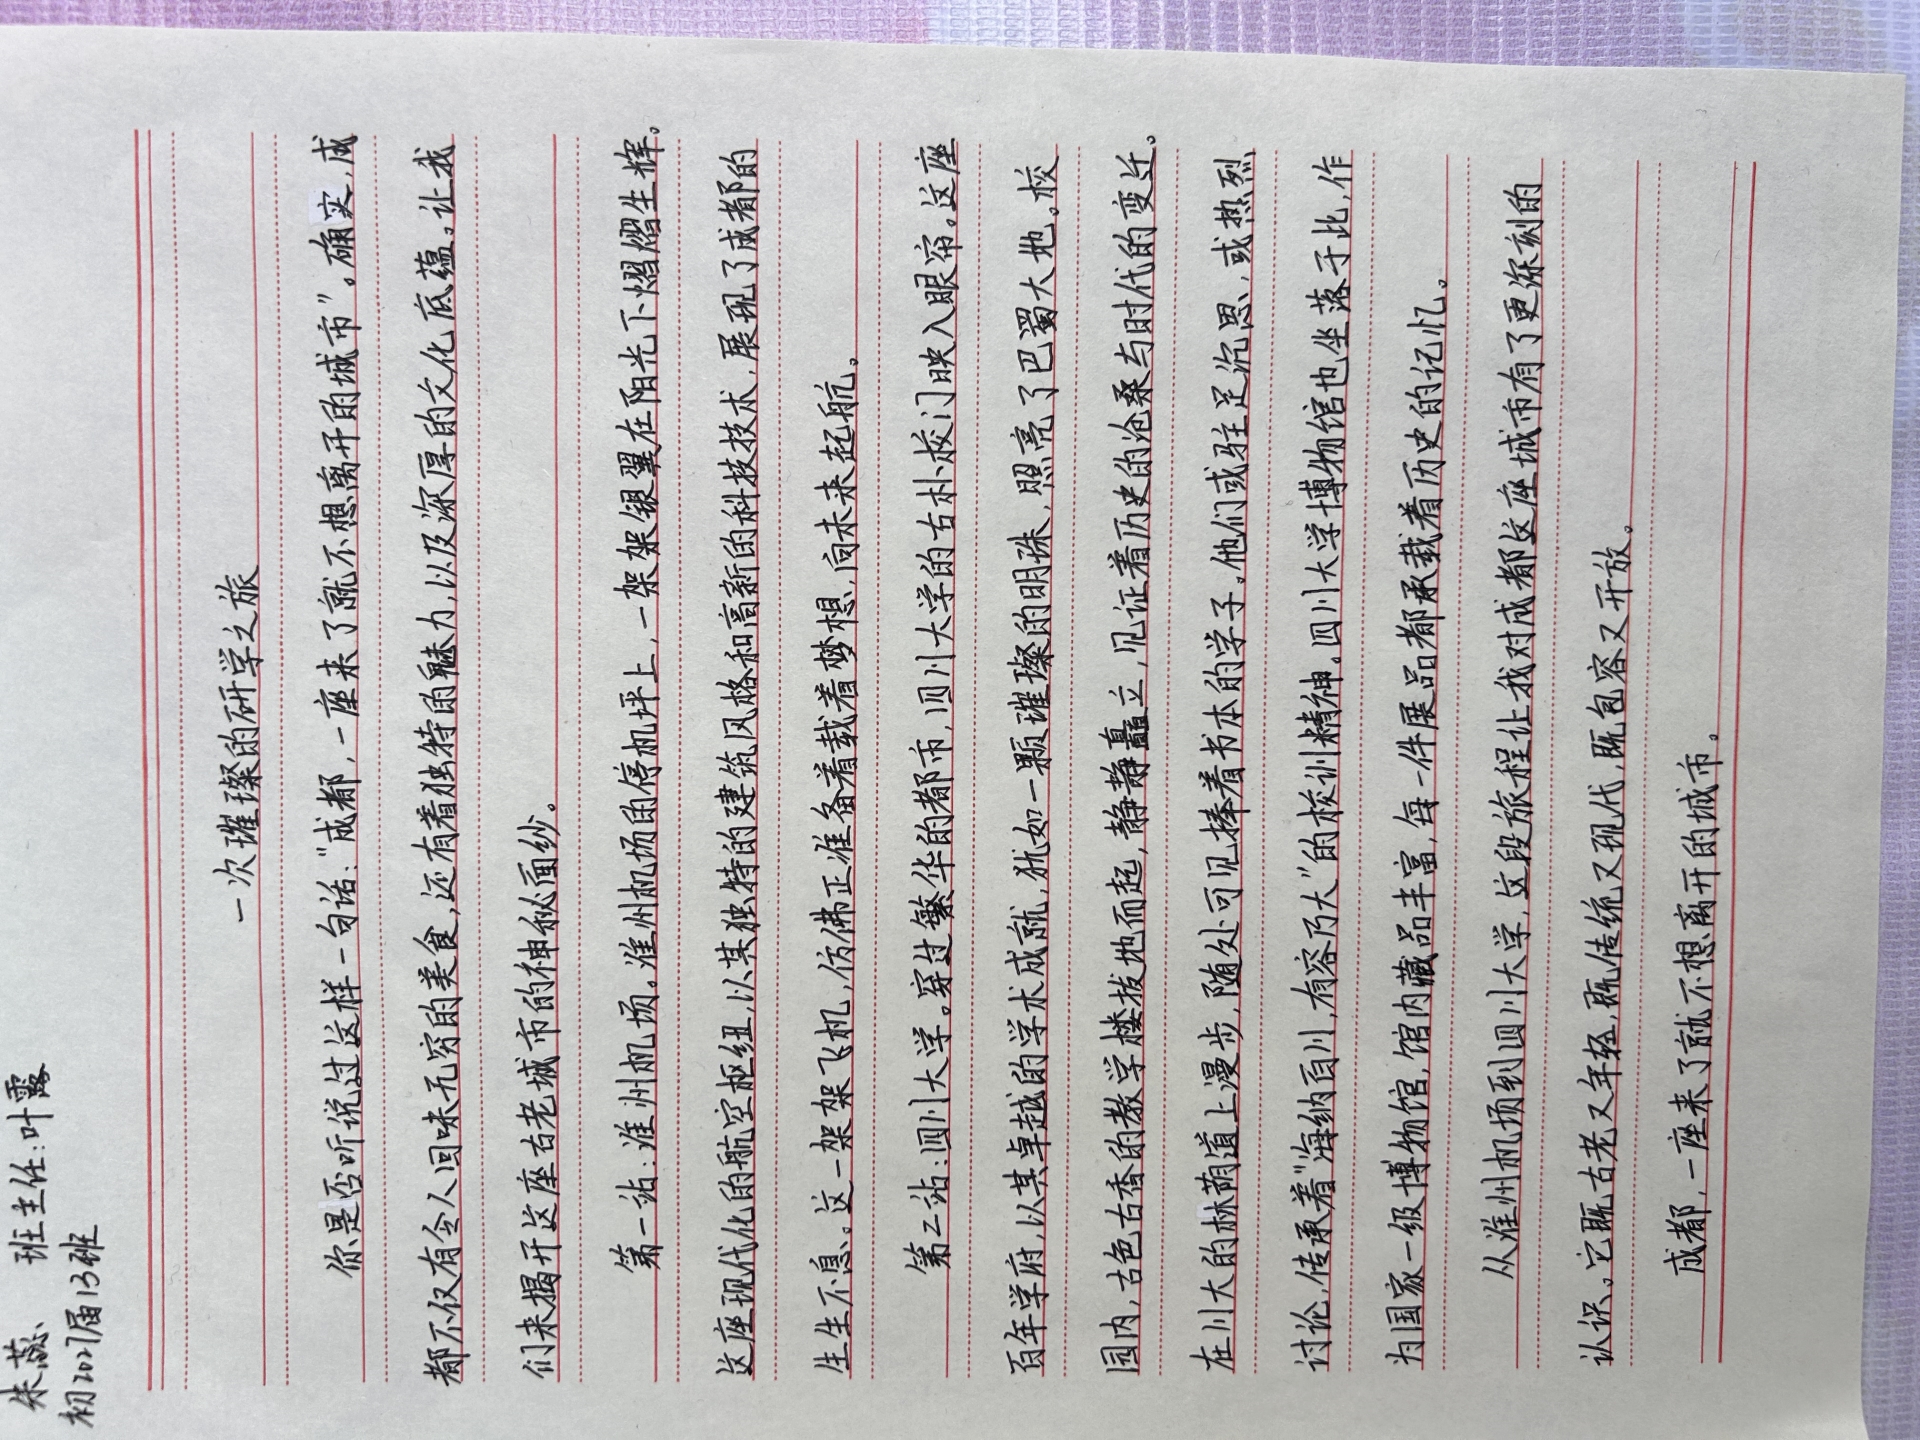 朱蕊、 班主任:叶露
初2027届13班
一次璀璨的研学之旅
你是否听说过这样一句话:“成都,一座来了就不想离开的城市”。确实,成
都不仅有令人回味无穷的美食,还有着独特的魅力,以及深厚的文化底蕴。让我
们来揭开这座古老城市的神秘面纱。
第一站:淮州机场。淮州机场的停机坪上,一架架银翼在阳光下熠熠生辉。
这座现代化的航空枢纽,以其独特的建筑风格和高新的科技技术,展现了成都的
生生不息。这一架架飞机,仿佛正准备着载着梦想,向未来起航。
第二站:四川大学。穿过繁华的都市,四川大学的古朴校门映入眼帘。这座
百年学府,以其卓越的学术成就,犹如一颗璀璨的明珠,照亮了巴蜀大地。校
园内,古色古香的教学楼拔地而起,静静矗立,见证着历史的沧桑与时代的变迁。
在川大的林荫道上漫步,随处可见捧着书本的学子。他们或驻足沉思,或热烈
讨论,传承着“海纳百川,有容乃大”的校训精神。四川大学博物馆也坐落于此,作
为国家一级博物馆,馆内藏品丰富,每一件展品都承载着历史的记忆。
从淮州机场到四川大学,这段旅程让我对成都这座城市有了更深刻的
认识。它既古老又年轻,既传统又现代,既包容又开放。
成都,一座来了就不想离开的城市。